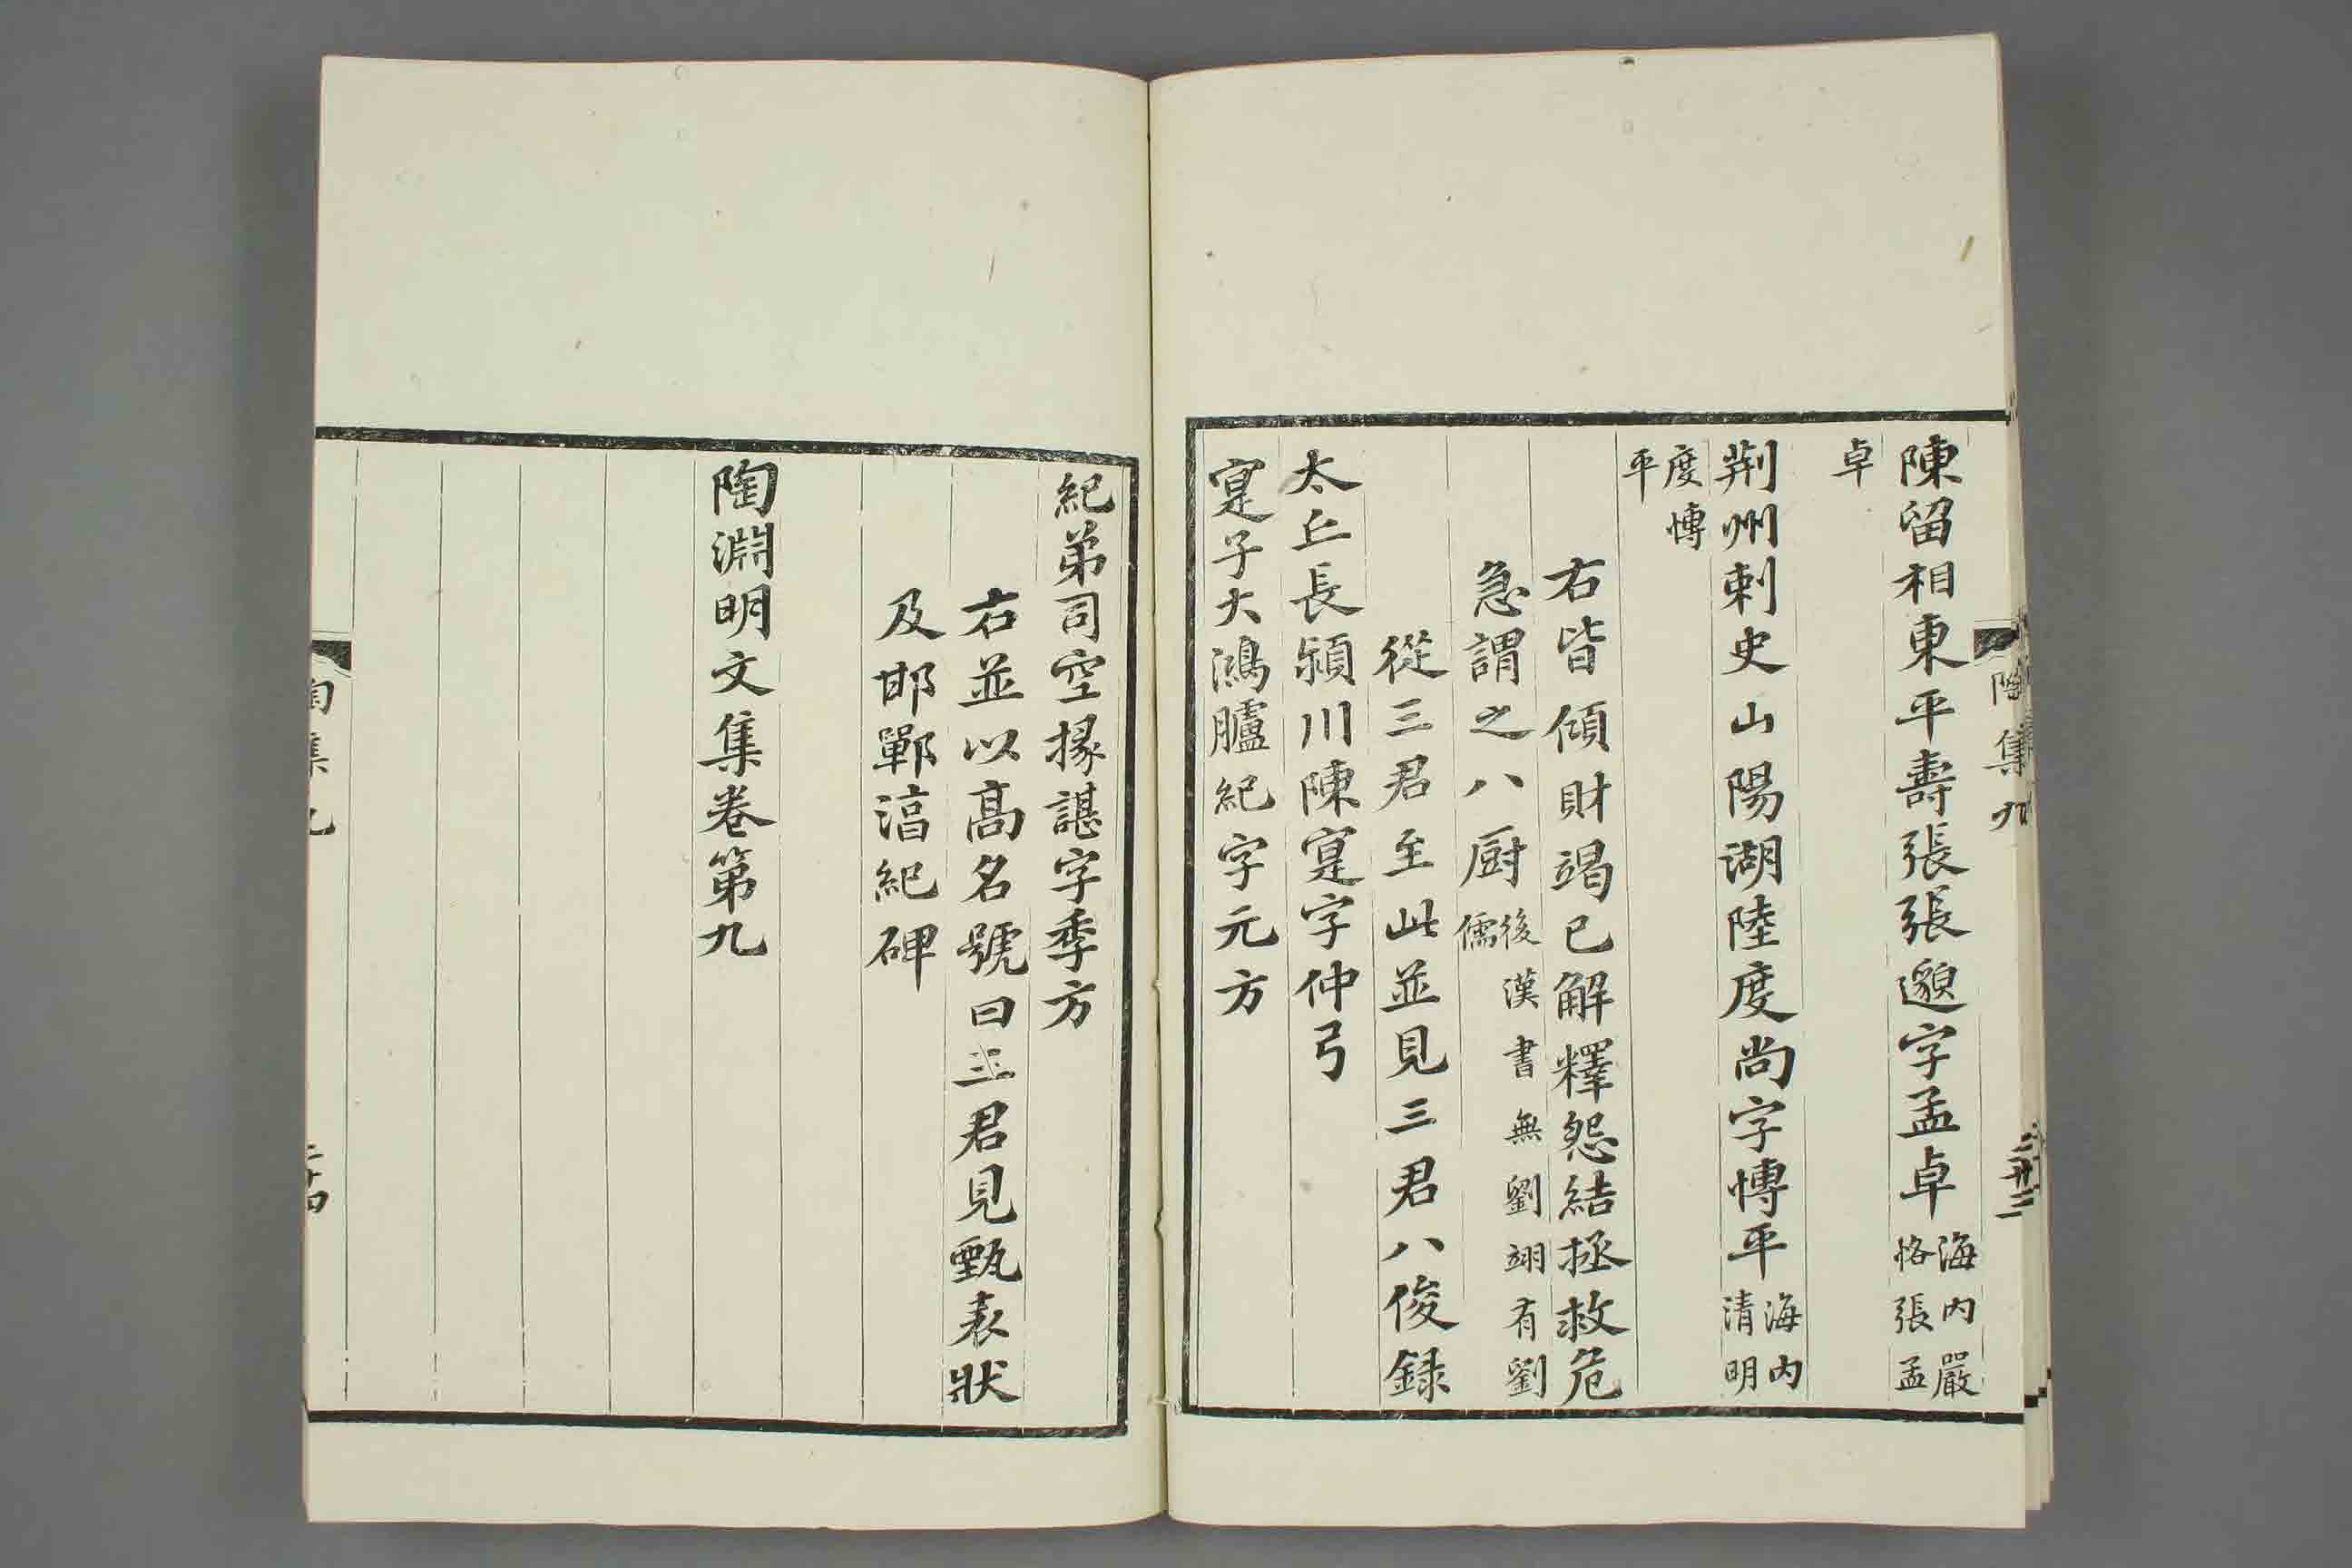 陳留相東平壽張張邈字孟卓海內嚴恪張孟
卓
荆州刺史山陽湖陸度尚字愽平海內清明
度愽平
右皆傾財竭已解釋怨結拯救危
急謂之八厨後漢書無劉翊有劉儒
從三君至此並見三君八俊録
太丘長潁川陳寔字仲弓
寔子大鴻臚紀字元方
陶集九
紀弟司空掾諶字季方
右並以髙名號曰三君見甄表狀
及邯鄲湻紀碑
陶淵明文集卷第九